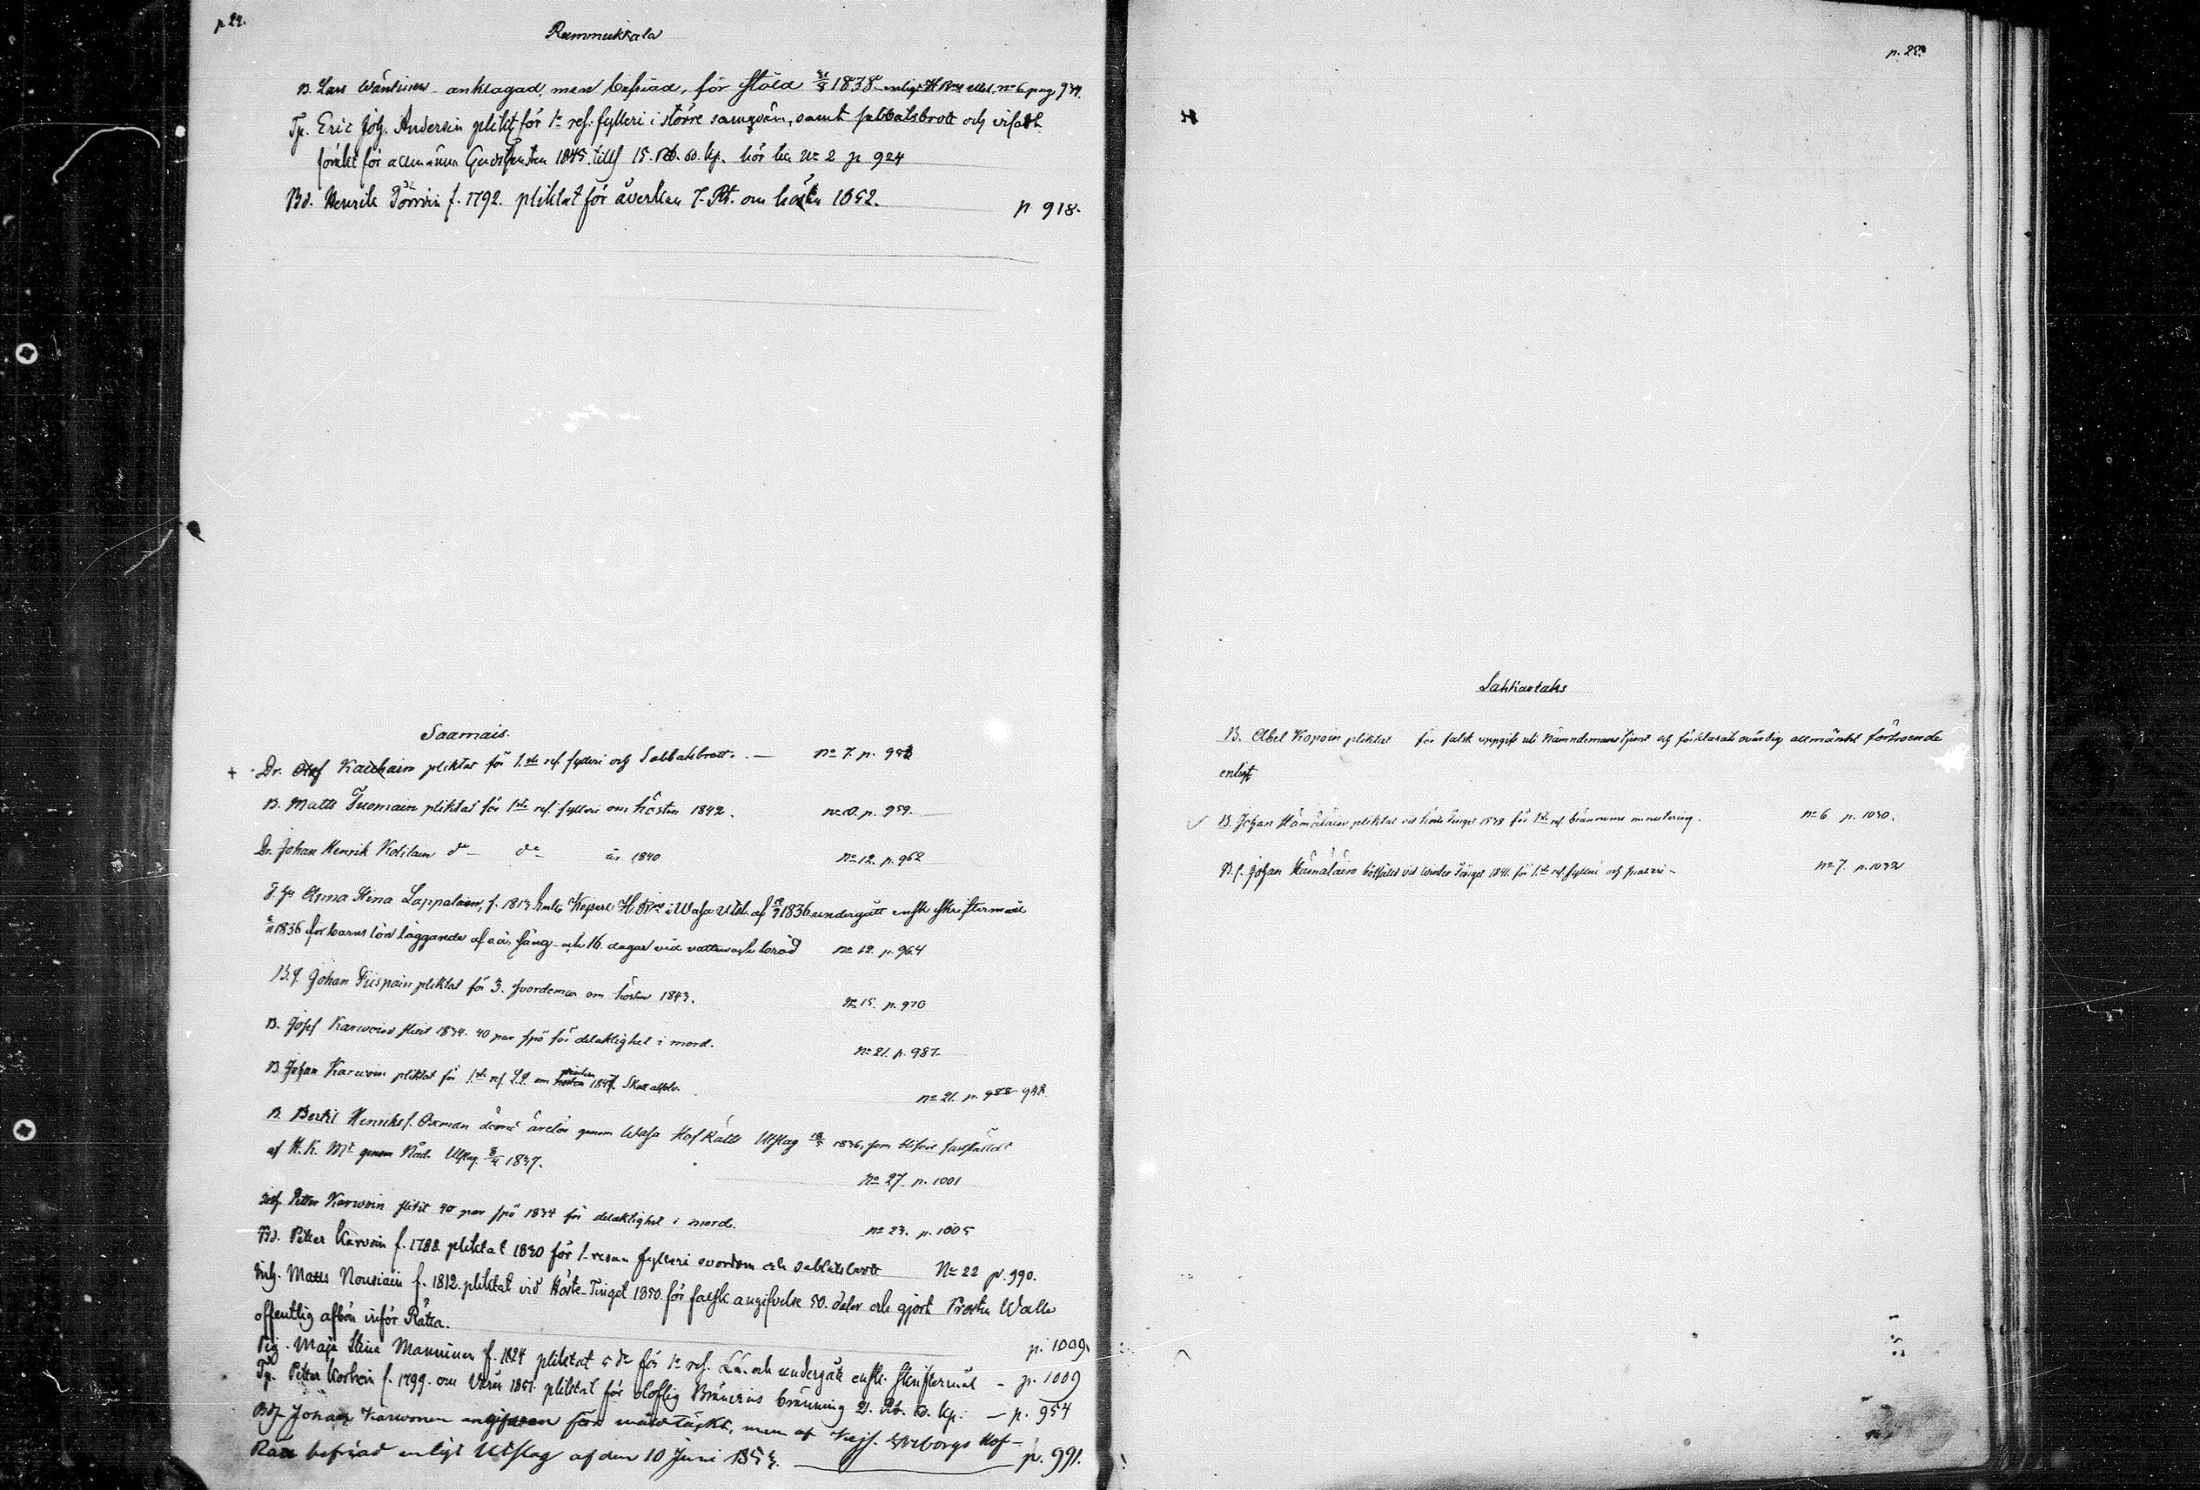 p 24.
Rummukkala
B. Lars Wäntinen anklagad, men befriad, för stöld 1838 enligt H Utsl. n° 6 pag 934.
Tp. Eric Joh. Andersin plikt för 1° res. fylleri i större samqvän, samt sabbatsbrott och
för allmänna Gudstjensten 1845 till 15. Rb. 60. Kp. N° 2 p 924
Bd. Henrik f. 1792. pliktat för åverkan 7. Rb. om hösten 1852.
p 918.
Saamais.
+ Dr. Olof Kaukain pliktat för 1.sta res. fylleri och Sabbatsbrott. — N° 7. p. 953
B. Matts Tuomain pliktat för 1sta res. fylleri om hösten 1842. p. 959.
Dr. Johan Henrik Kolilain d° — d° — år 1840 N° 12. p. 962
Anna Stina Lappalain, f. 1813 Kejserl. H. i Wasa Utsl. af 1836 undergått enskt skriftermål
1836 för barns lön läggande af a är, fäng. och 16 dagar vid vatten och bröd N° 12. p. 964
B.S. Johan Piispain pliktat för 3. svordomar om hösten 1843. N° 15. p. 970
B. Josef Karvoin slitit 1834. 40 par spö för delaktighet i mord. N° 21. p. 987.
B. Johan Karvoin pliktat för 1sta res. L.L. om hösten 1847. N° 21. p. 988 948
B. Bertil Henriks s. Oxman dömd ärelös genom Wasa Hof Rätts Utslag 1836, som blifvit fastställdt
af H. K. Mt genom Nåd. Utslag 1837.
N° 27. p. 1001
Inh. Petter Karvoin slitit 40 par spö 1834 för delaktighet i mord. N° 23. p. 1005
Bd. Petter Karvoin f. 1788 pliktat 1830 för 1. resan fylleri svordom och sabbatsbrott N° 22 p. 990.
Inh. Matts Nousiain f. 1812. pliktat vid Höste-Tinget 1850. för falsk angifvelse 50. daler och gjort Prosten Walle
offentlig afbön inför Rätta.
p. 1009.
Pig. Maja Stina Manninen f. 1824 pliktat 5 d° för 1° res. L.L. och undergått ensk. skriftermål — p. 1009
Tp. Petter Korhoin f. 1799. om Våren 1851. pliktat för oloflig Bränvins bränning 21. Rb. 60. Kp. — p. 954
Bdf. Johan Karvonen angifven för men af Kejs. Wiborgs Hof-
Rätt befriad enligt Utslag af den 10 Juni 1853. p. 991.
p. 25.
Lahkastaks
B. Abel Kopoin pliktat för falsk uppgift uti Nämndemans tjenst och förklarats ovärdig allmänhet förtroende
enligt
B. Johan Hämäläin pliktat vid Tinget 1838 för 1sta res. bränvins minutering. N° 6 p. 1030.
B.s. Johan Hämäläin bötfälld vid Winter Tinget 1841. för 1.sta res. fylleri och N° 7. p. 1032